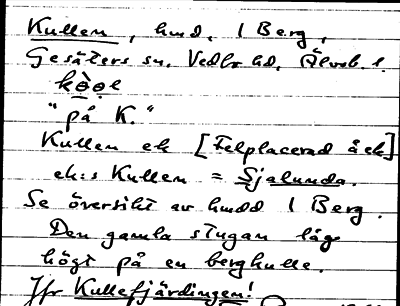 Kullen, hmd. 1 Berg,
Gesäters sn. Vedbo hd. Älvsb. l.
kòọe
"på K."
Kullen ek [Felplacerad å ek]
ek:s Kullen = Sjalunda.
Se översikt av hmdd 1 Berg.
Den gamla stugan låg
högt på en bergkulle.
Jfr Kullefjärdingen!